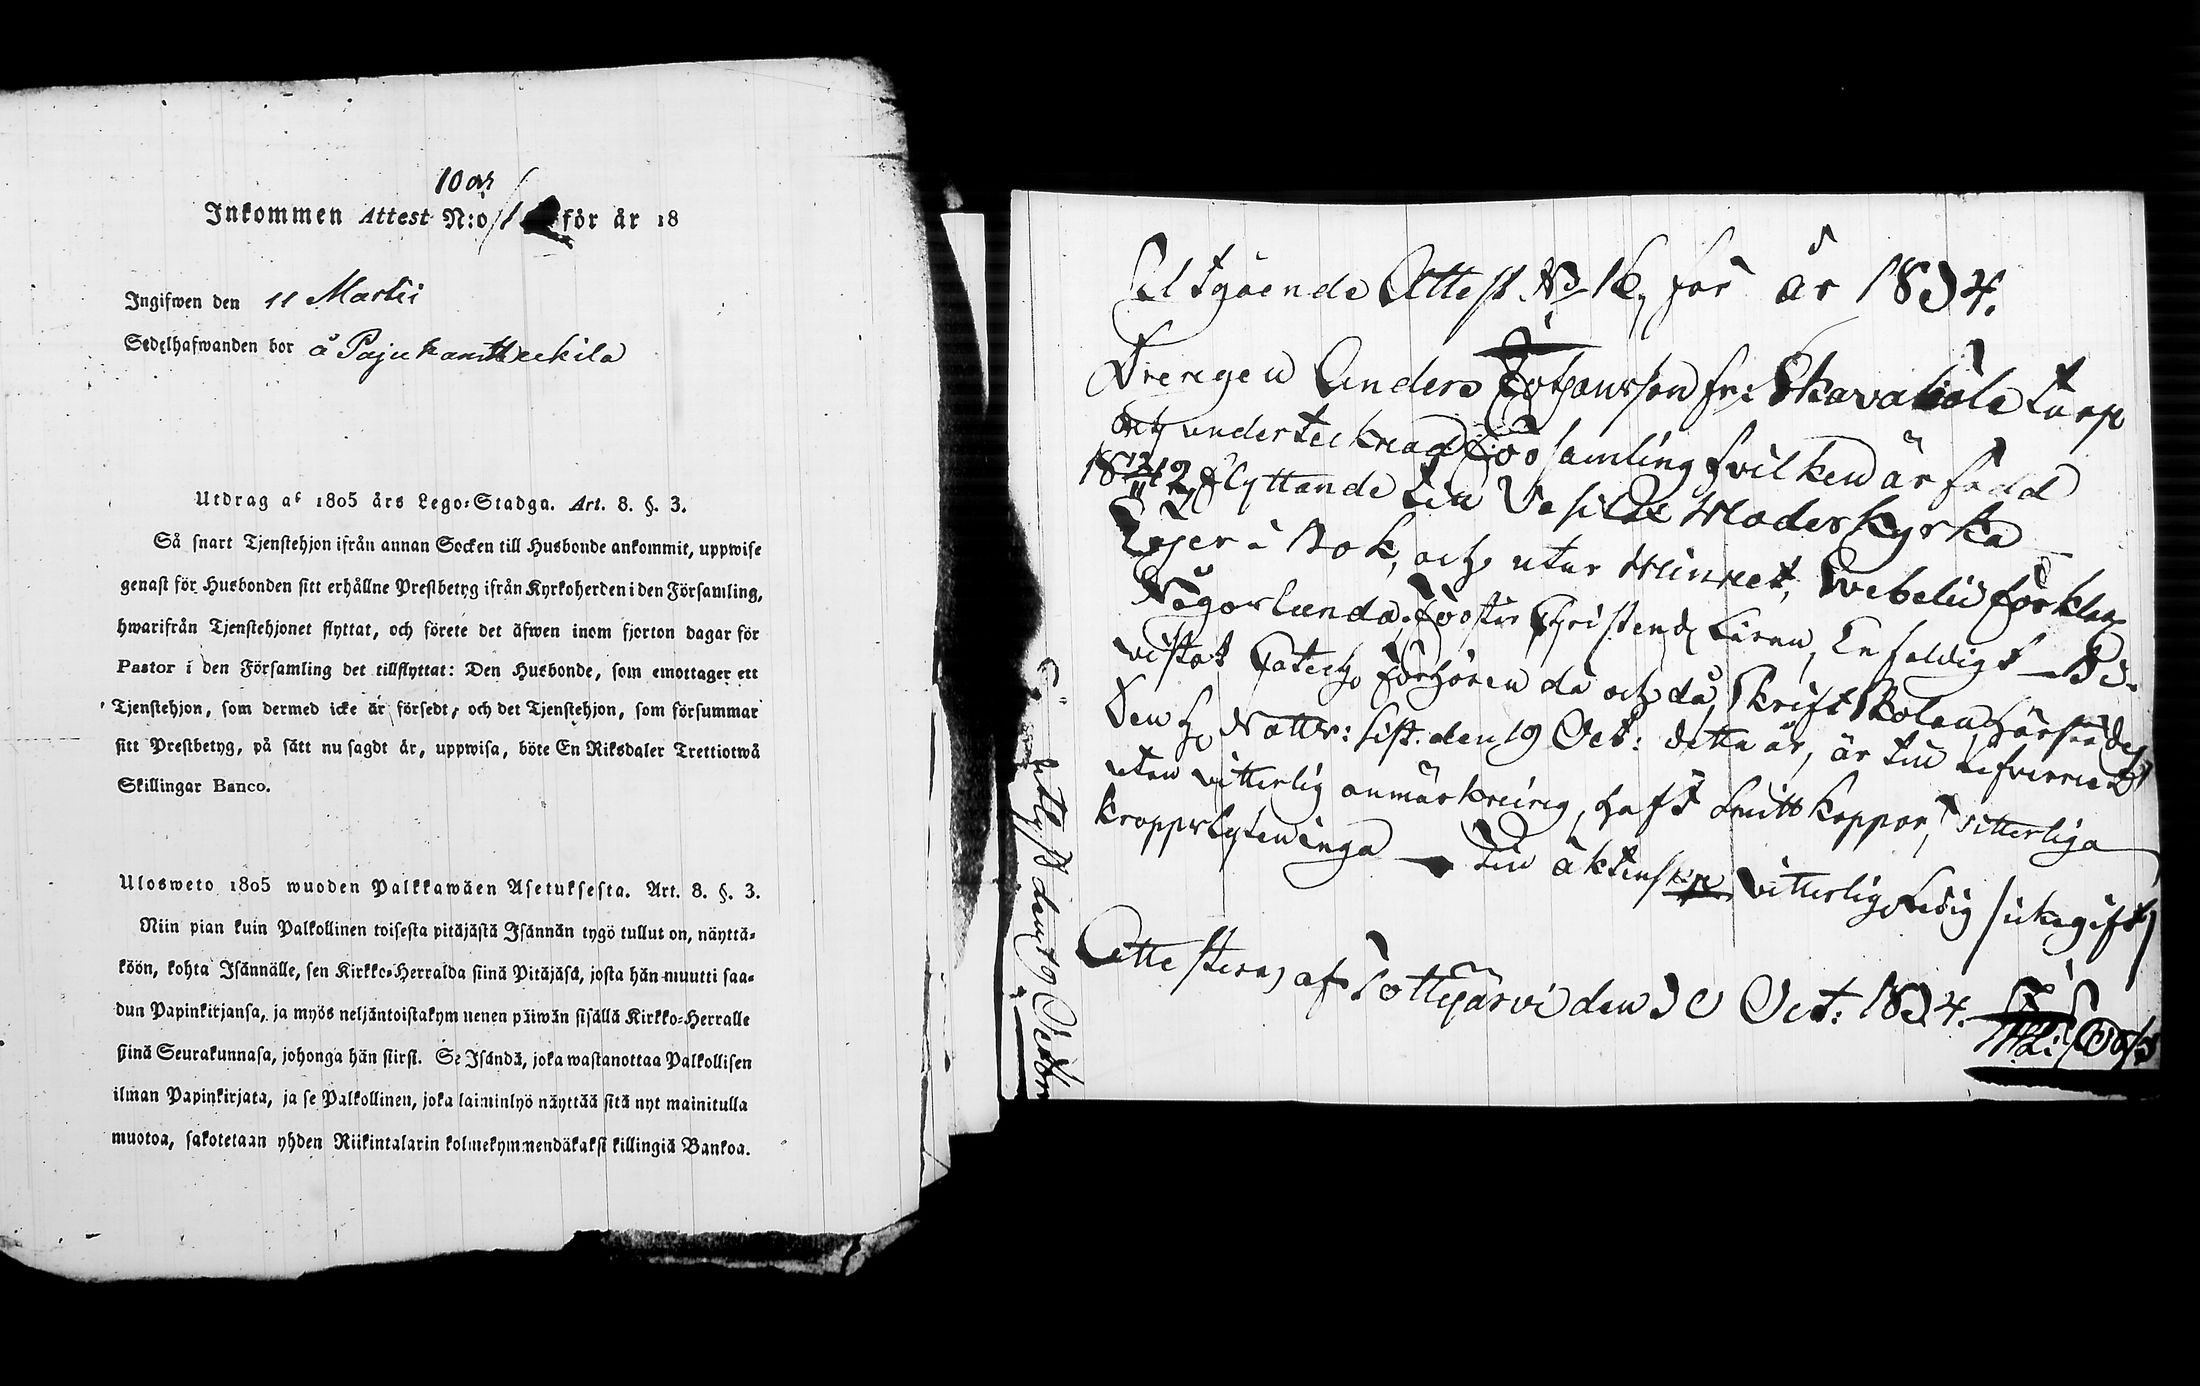 10 or
Inkommen Attest N:o 1 för år 18
Ingifwen den 11 Martii
Sedelhafwanden bor å Pajukanta Heikilä
Utdrag af 1805 års Lego-Stadga. Art. 8. §. 3.
Så snart Tjenstehjon ifrån annan Socken till Husbonde ankommit, uppwise
genast för Husbonden sitt erhållne Prestbetyg ifrån Kyrkoherden i den Församling,
hwarifrån Tjenstehjonet flyttat, och förete det äfwen inom fjorton dagar för
Pastor i den Församling det tillflyttat: Den Husbonde, som emottager ett
Tjenstehjon, som dermed icke är försedt, och det Tjenstehjon, som försummar
sitt Prestbetyg, på sätt nu sagdt är, uppwisa, böte En Riksdaler Trettiotwå
Skillingar Banco.
Ulosweto 1805 wuoden Palkkawäen Asetuksesta. Art. 8. §. 3.
Niin pian kuin Palkollinen toisesta pitäjästä Isännän tygö tullut on, näyttä-
köön, kohta Isännälle, sen Kirkko-Herralda siinä Pitäjäsä, josta hän muutti saa-
dun Papinkirjansa, ja myös neljäntoistakymmenen päiwän sisällä Kirkko-Herralle
siinä Seurakunnasa, johonga hän siirsi. Se Isändä, joka wastanottaa Palkollisen
ilman Papinkirjata, ja se Palkollinen, joka laiminlyö näyttää sitä nyt mainitulla
muotoa, sakotetaan yhden Riikintalarin kolmekymmendäkaksi killingiä Bankoa.
Utgående Attest No 16, för år 1834.
Drengen Anders Johansson fr: Skavaböle torp
och undertecknad Församling hvilken är född
18 12/11 12 flyttande till Vesilax Moderkyrka
Läser i Bok, och utur Minnet, Svebelii förklar
Någorlunda, Förstår Christend Läran, Enfaldigt Be-
vistat Catech Förhören då och då, Skriftskolan, Härstädes
Den H Nattv: sist. den 19 Oct: detta år, är till lefvernet
utan vitterlig anmärkning, haft Smittkoppor, vitterliga
kroppslyten inga Till äktenskap vitterlig Ledig /:icke gift:/
Attesteras af Tottijärvi den 30 Oct: 1834.
utlyst den 19 Octobr